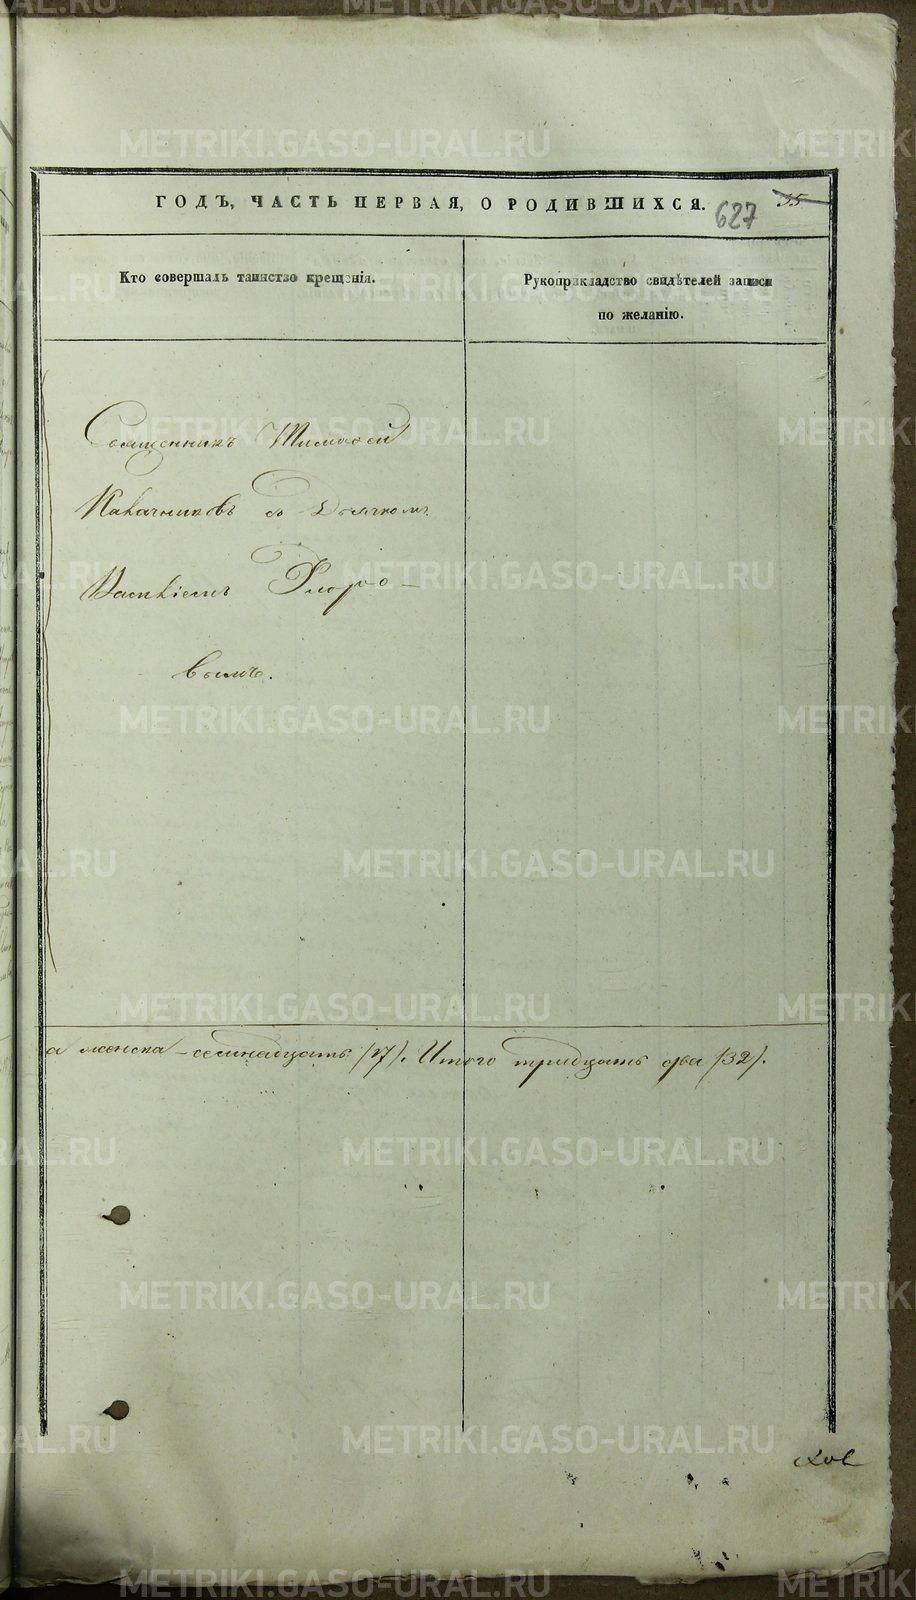 ГОДЪ, ЧАСТЬ ПЕРВАЯ, О РОДИВШИХСЯ.
627
35
Кто совершалъ таинство крещенія.
Рукоприкладство свидѣтелей записи
по желанію.
Священникъ Тимофей
съ Дьячкомъ
Василіемъ Флоро-
вымъ.
а женска - семнадцать /17/. Итого тридцать два /32/.
METRIKI.GASO-URAL.RU